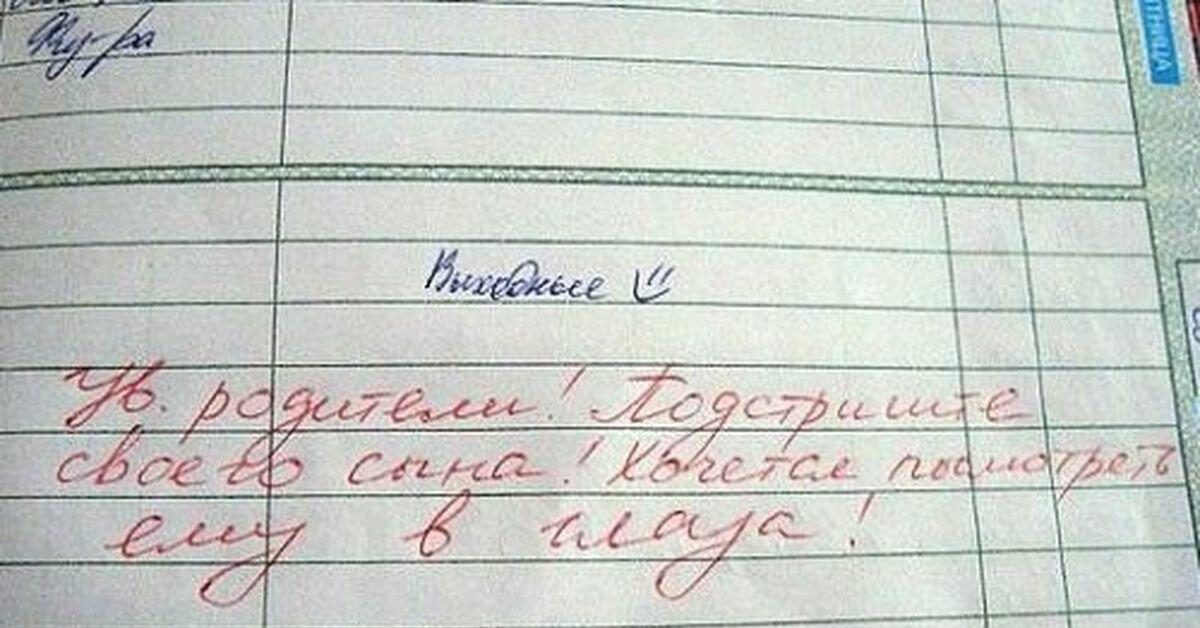 Фу-ра
Выходные
Ув. родители! Подстригите
своего сына! Хочется посмотреть
ему в глаза!